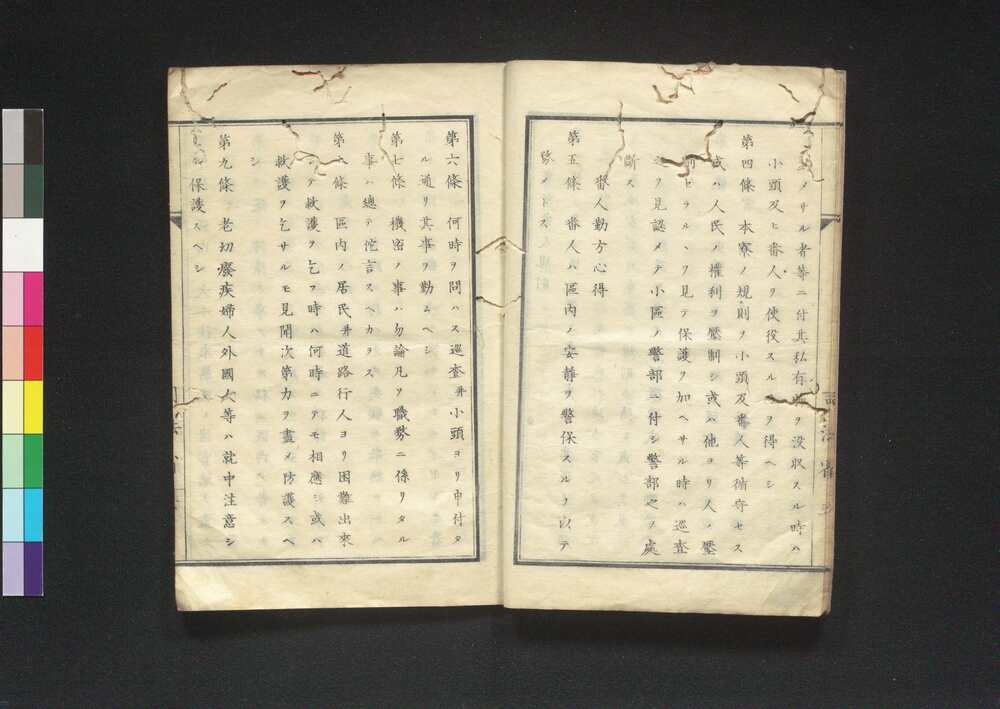 メサル者等ニ付其私有ヲ没収スル時ハ
小頭及ヒ番人ヲ使役スルヲ得ヘシ
第四條 本寮ノ規則ヲ小頭及番人等循守セス
或ハ人民ノ權利ヲ壓制シ或ハ他ヨリ人ノ壓
制セラルヽヲ見テ保護ヲ加ヘサル時ハ巡査
之ヲ見認メテ小區ノ警部ニ付シ警部之ヲ處
斷ス
番人勤方心得
第五條 番人ハ區内ノ安静ヲ警保スルヲ以テ
務メトス
第六條 何時ヲ問ハス巡査并小頭ヨリ申付タ
ル通リ其事ヲ勤ムヘシ
第七條 機密ノ事ハ勿論凡ソ職務ニ係リタル
事ハ總テ他言スヘカラス
第八條 區内ノ居民并道路行人ヨリ困難出來
シテ救護ヲ乞フ時ハ何時ニテモ相應シ或ハ
救護ヲ乞サルモ見聞次第力ヲ盡メ防護スヘ
シ
第九條 老幼癈疾婦人外國人等ハ就中注意シ
テ保護スヘシ
司法省